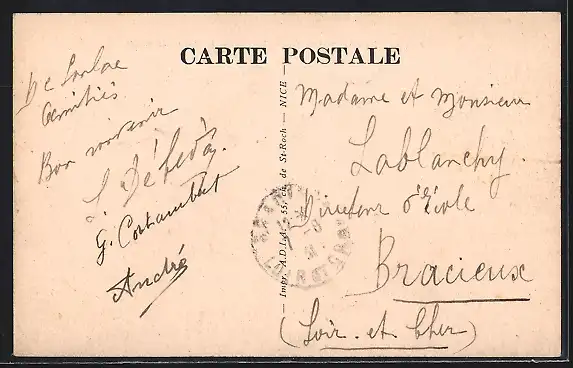 CARTE POSTALE
De
Amitiés
Bon souvenir
G. Costambert
André
Impr. A.D.I.A., 55, de St-Roch — NICE
Madame et Monsieur
Lablanchy.
Directeur d'École
Bracieux
(Loir-et-Cher)
LOIR ET CHER